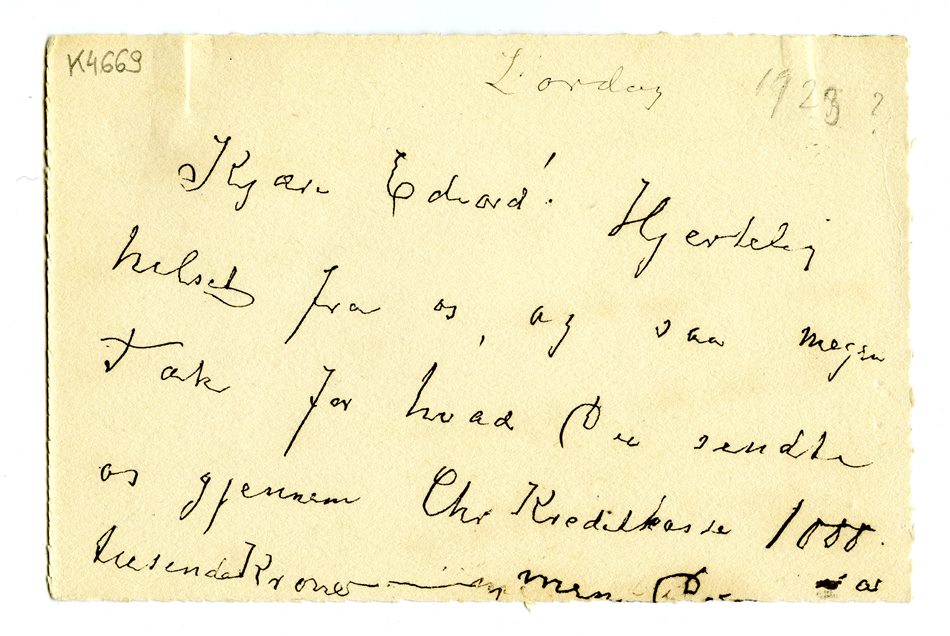 K4669
Lördag 1923?
Kjære Edvard! Hjertelig
helset fra os, og saa megen
Tak for hvad Du sendte
os gjennem Chr Kreditkasse 1000.
tusende Kroner men Du